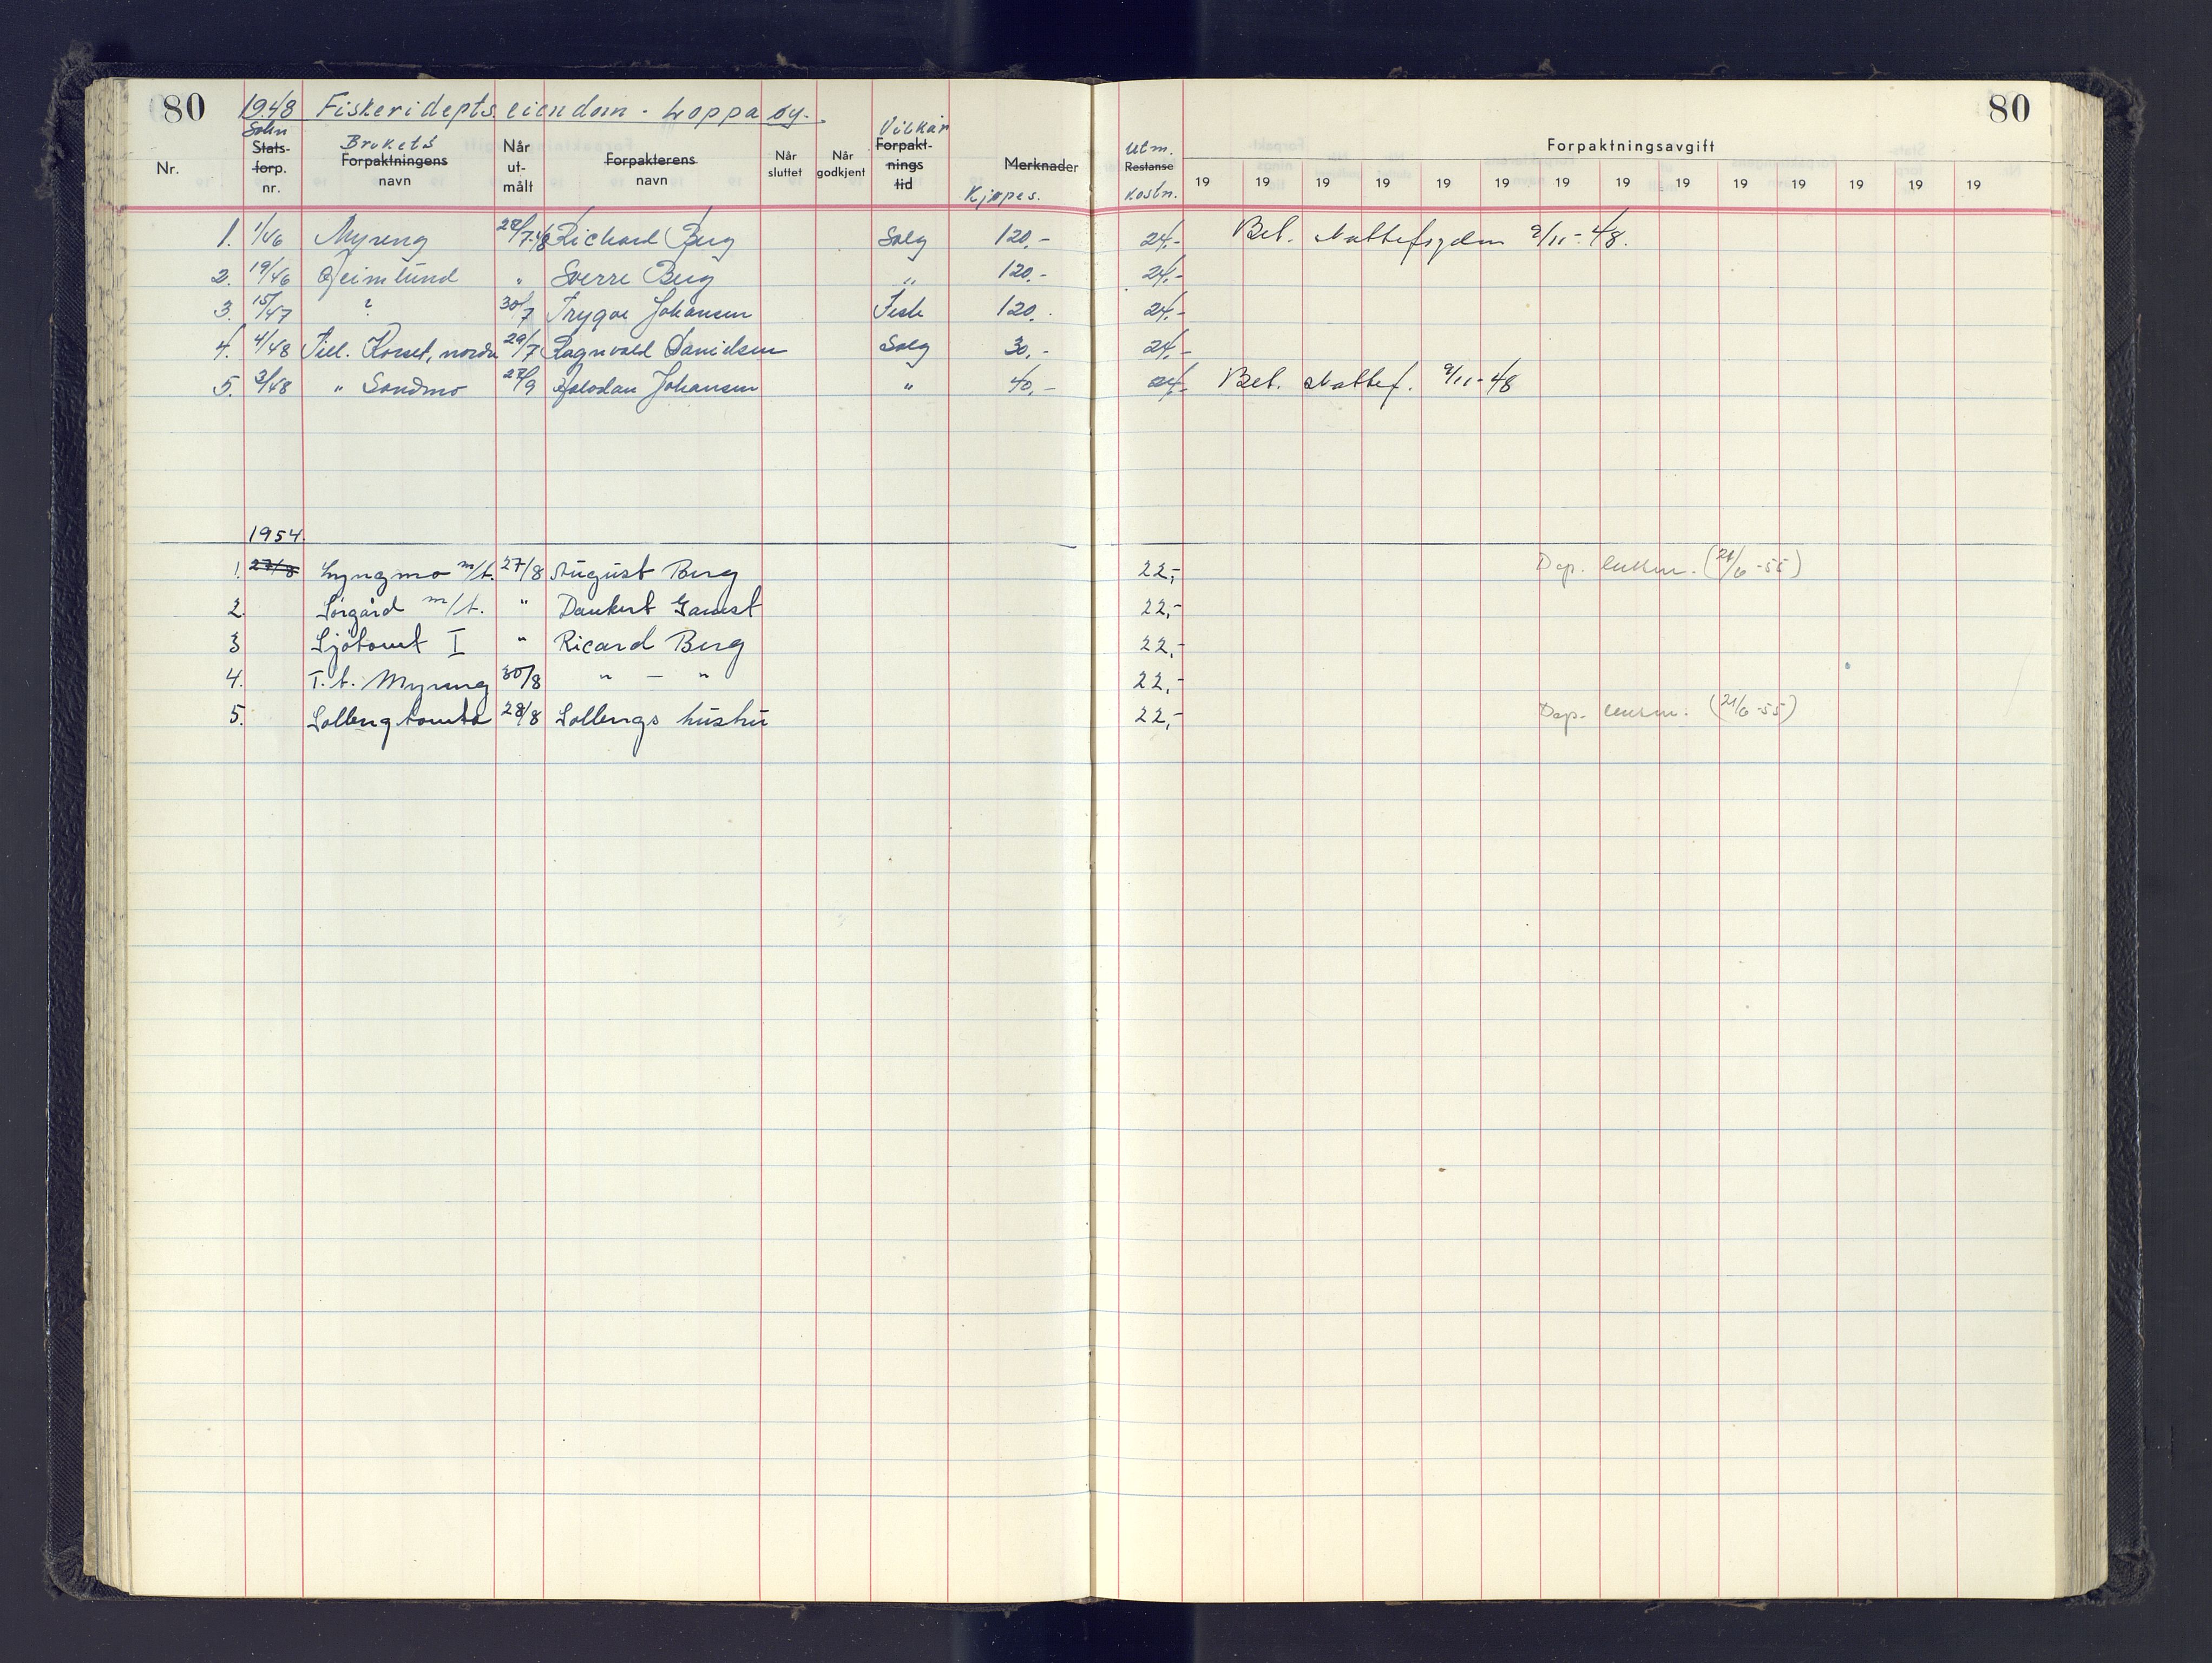 80 1948 Fiskeridepts. eiendom - Loppa øy. 80
Nr. Søkn Stats-forp. nr. Brukets Forpaktningens navn Når ut-målt Forpakterens navn Når sluttet Når godkjent Vilkår Forpakt-nings tid Merknader Kjøpes. Utm. Restanse kostn. Forpaktningsavgift
19 19 19 19 19 19 19 19 19 19 19 19 19 19
1. 1/46 Myreng 28/7-48 Richard Berg Salg 120,- 24,- Bet. skattefogden 9/11-48.
2. 19/46 Heimlund " Sverre Berg " 120,- 24,-
3. 15/47 ? 30/7 Trygve Johansen Feste 120,- 24,-
4. 4/48 Till. Korset, nordre 29/7 Ragnvald Danielsen Salg 30,- 24,-
5. 3/48 " Sandmo 27/9 Halvdan Johansen " 40,- 24,- Bet. skattef. 9/11-48
1954
1. 27/8 Lyngmo m/t. 27/8 August Berg 22,- Dep. (21/6-55)
2. Sørgård m/t. " Dankert Gamst 22,-
3 Sjøtomt I " Ricard Berg 22,-
4. T.t. Myreng 30/8 " - " 22,-
5. Solleng tomta 28/8 Sollengs hustru 22,- Dep. (21/6-55)